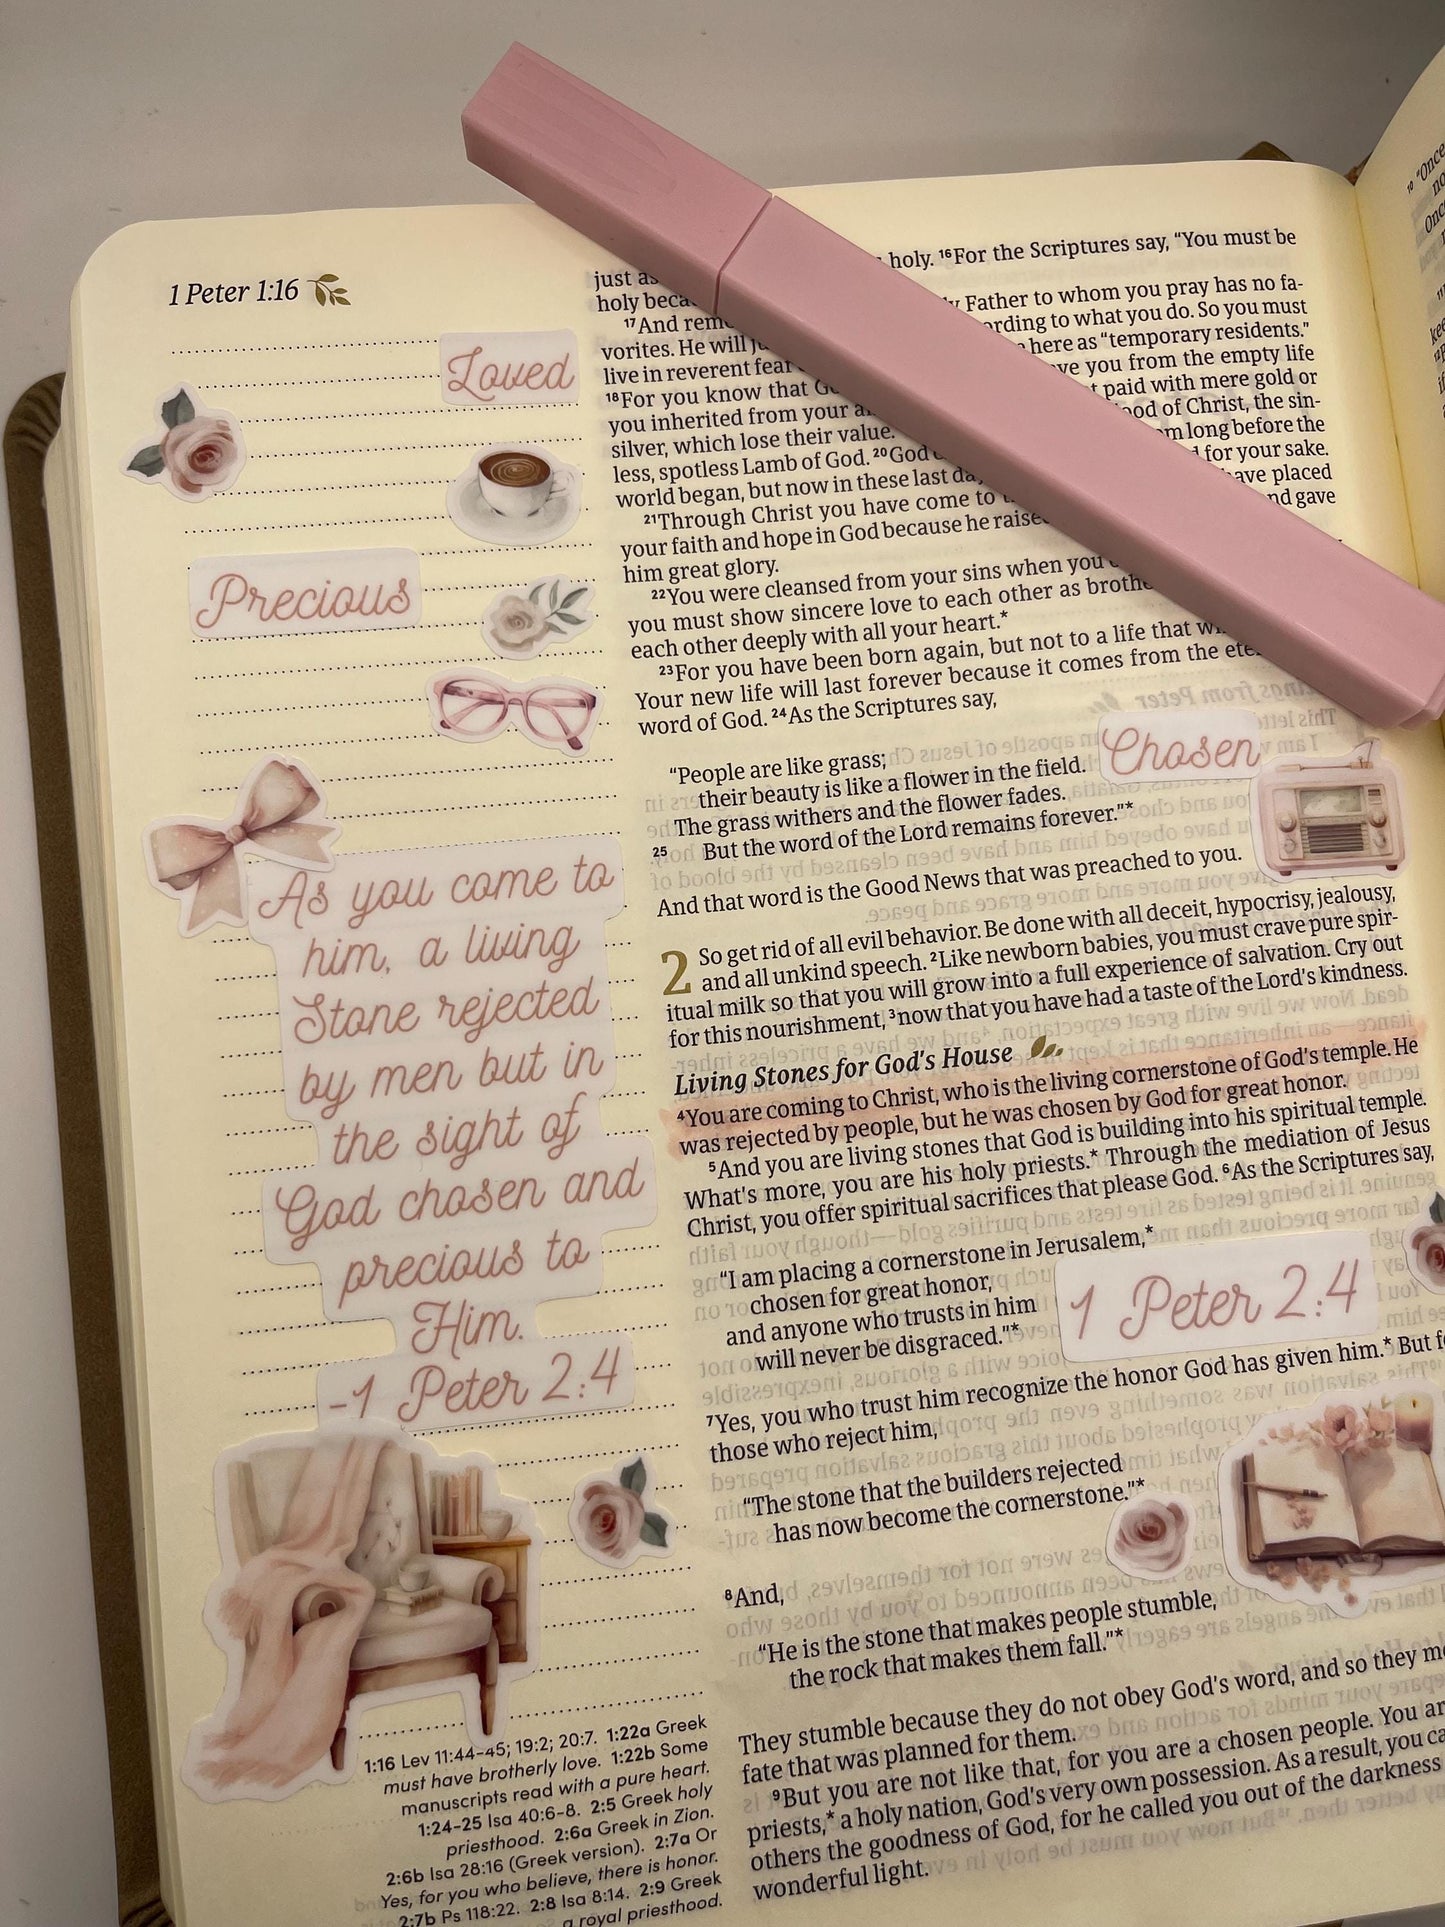 1 Peter 1:16
Loved
Precious
As you come to
him, a living
Stone rejected
by men but in
the sight of
God chosen and
precious to
Him.
-1 Peter 2:4
1:16 Lev 11:44-45; 19:2; 20:7. 1:22a Greek
must have brotherly love. 1:22b Some
manuscripts read with a pure heart.
1:24-25 Isa 40:6-8. 2:5 Greek holy
priesthood. 2:6a Greek in Zion.
2:6b Isa 28:16 (Greek version). 2:7a Or
Yes, for you who believe, there is honor.
2:7b Ps 118:22. 2:8 Isa 8:14. 2:9 Greek
a royal priesthood.
just as holy. 16For the Scriptures say, “You must be
holy
17And Father to whom you pray has no fa-
vorites. He will according to what you do. So you must
live in reverent fear here as “temporary residents.”
18For you know that you from the empty life
you inherited from your paid with mere gold or
silver, which lose their value. of Christ, the sin-
less, spotless Lamb of God. 20God long before the
world began, but now in these last for your sake.
21Through Christ you have come to have placed
your faith and hope in God because he and gave
him great glory.
22You were cleansed from your sins when you
you must show sincere love to each other as
each other deeply with all your heart.*
23For you have been born again, but not to a life that
Your new life will last forever because it comes from the
word of God. 24As the Scriptures say,
“People are like grass;
their beauty is like a flower in the field.
The grass withers and the flower fades.
25 But the word of the Lord remains forever.”*
Chosen
And that word is the Good News that was preached to you.
2 So get rid of all evil behavior. Be done with all deceit, hypocrisy, jealousy,
and all unkind speech. 2Like newborn babies, you must crave pure spir-
itual milk so that you will grow into a full experience of salvation. Cry out
for this nourishment, 3now that you have had a taste of the Lord's kindness.
Living Stones for God's House
4You are coming to Christ, who is the living cornerstone of God's temple. He
was rejected by people, but he was chosen by God for great honor.
5And you are living stones that God is building into his spiritual temple.
What's more, you are his holy priests.* Through the mediation of Jesus
Christ, you offer spiritual sacrifices that please God. 6As the Scriptures say,
“I am placing a cornerstone in Jerusalem,*
chosen for great honor,
and anyone who trusts in him
will never be disgraced.”*
1 Peter 2:4
7Yes, you who trust him recognize the honor God has given him.* But
those who reject him,
“The stone that the builders rejected
has now become the cornerstone.”*
8And,
“He is the stone that makes people stumble,
the rock that makes them fall.”*
They stumble because they do not obey God's word, and so they
fate that was planned for them.
9But you are not like that, for you are a chosen people. You
priests,* a holy nation, God's very own possession. As a result, you
others the goodness of God, for he called you out of the darkness
wonderful light.